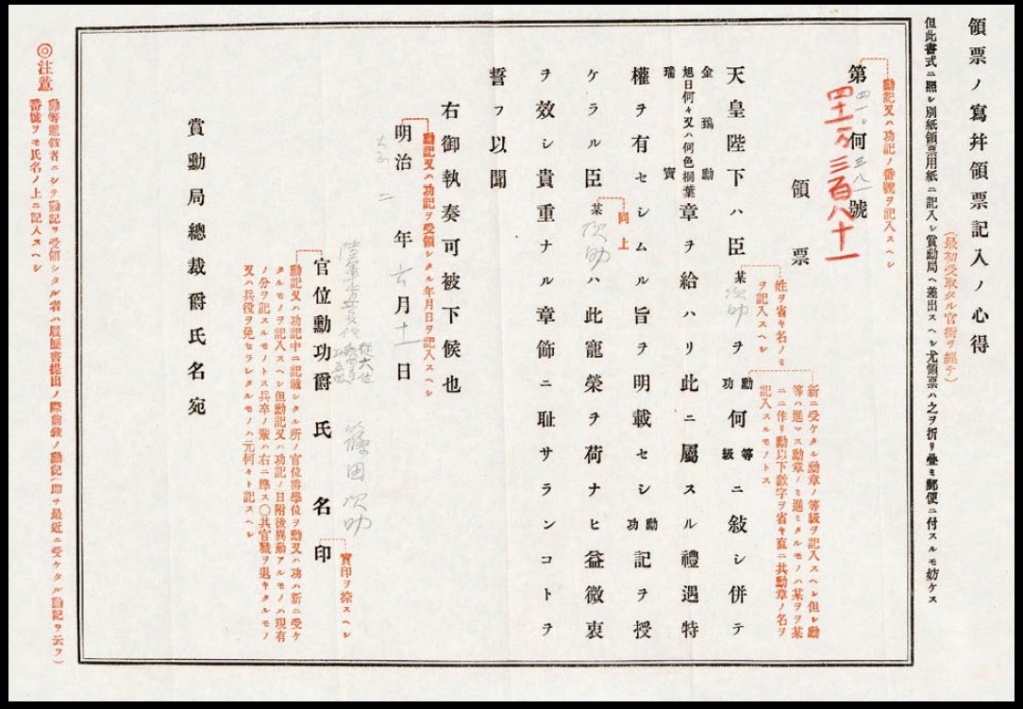 領票ノ寫幷領票記入ノ心得
(最初受取タル官衙ヲ經テ)
但此書式ニ照シ別紙領票用紙ニ記入シ賞勳局ヘ差出スヘシ尤領票ハ之ヲ折リ疊ミ郵便ニ付スルモ妨ケス
勳記又ハ功記ノ番號ヲ記入スヘシ
第 何 號
四一〇三八一
四十一万〇三百八十一
領票
姓ヲ省キ名ノミヲ記入スヘシ
新ニ受ケタル勳章ノ等級ヲ記入スヘシ但シ勳
等ハ進マス勳章ノミ進ミタルモノハ某ヲ某
ニニ作リ勳以下數字ヲ省キ直ニ其勳章ノ名ヲ
記入スルモノトス
天皇陛下ハ臣某次助ヲ勳功何等級ニ敍シ併テ
金鵄勳
旭日何々又ハ何色桐葉章ヲ給ハリ此ニ屬スル禮遇特
瑞寶
權ヲ有セシムル旨ヲ明載セシ勳功記ヲ授
同上
ケラル臣某次助ハ此寵榮ヲ荷ナヒ益微衷
ヲ效シ貴重ナル章飾ニ耻サランコトヲ
誓フ以聞
右御執奏可被下候也
勳記又ハ功記ヲ受領シタル年月日ヲ記入スヘシ
明治二年六月十一日
官位勳功爵氏名印
篠田次助
實印ヲ捺スヘシ
勳記又ハ功記中ニ記載シタル所ノ官位爵學位ヲ勳又ハ功ハ新ニ受ケ
タルモノヲ記入スヘシ但勳記又ハ功記ノ日附後異動アルモノハ現有
ノ分ヲ記スルモノトス兵卒ノ輩ハ右ニ準ス〇其官職ヲ退キタルモノ
又ハ兵役ヲ免セラレタルモノハ元何々ト記スヘシ
賞勳局總裁爵氏名宛
◎注意
勳等進敍者ニシテ勳記ヲ受領シタル者ハ履歷書提出ノ際前敍ノ勳記(即チ最近ニ受ケタル勳記ヲ云フ)
番號ヲモ氏名ノ上ニ記入スヘシ